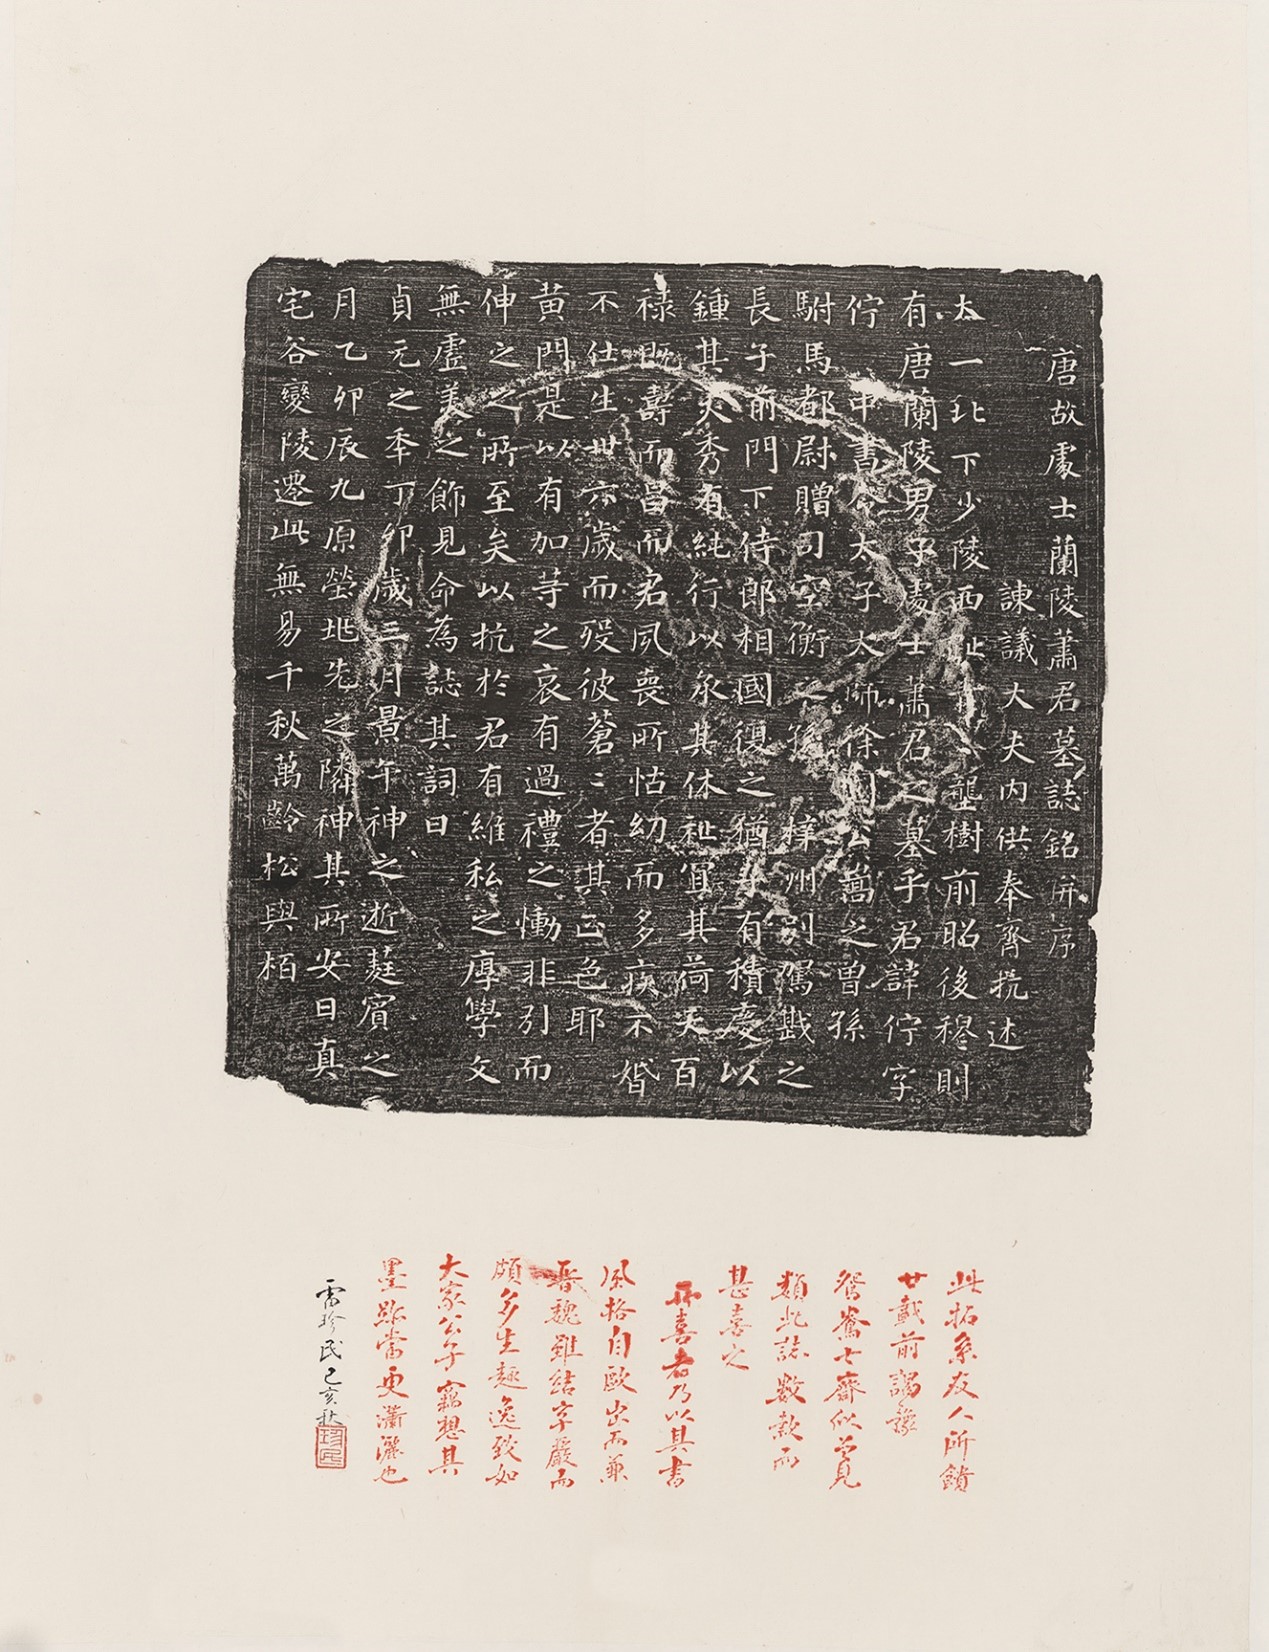 唐故處士蘭陵蕭君墓誌銘并序
諫議大夫內供奉齊抗述
太一北下少陵西址 壟樹前昭後穆則
有唐蘭陵男子處士蕭君之墓乎君諱佇字
佇 中書令太子太師徐國公嵩之曾孫
駙馬都尉贈司空衡之孫 梓州別駕戡之
長子前門下侍郎相國復之猶子有積慶以
鍾其英秀有純行以承其休祉宜其荷天百
祿既壽而昌而君夙喪所怙幼而多疾不婚
不仕生卅六歲而歿彼蒼〻者其正色耶
黃門是以有加等之哀有過禮之慟非引而
伸之之所至矣以抗於君有維私之厚學文
無虛美之飾見命為誌其詞曰
貞元之年丁卯歲三月景午神之逝蕤賓之
月乙卯辰九原塋兆先之隣神其所安曰真
宅谷變陵遷此無易千秋萬齡松與栢
此拓系友人所饋
廿載前謁豫
鴛鴦七齋似曾見
類此誌數款而
甚喜之
再喜者乃以其書
風格自歐出而兼
晉魏雖結字嚴而
頗多生趣逸致如
大家公子竊想其
墨跡當更瀟灑也
雷珍民己亥秋